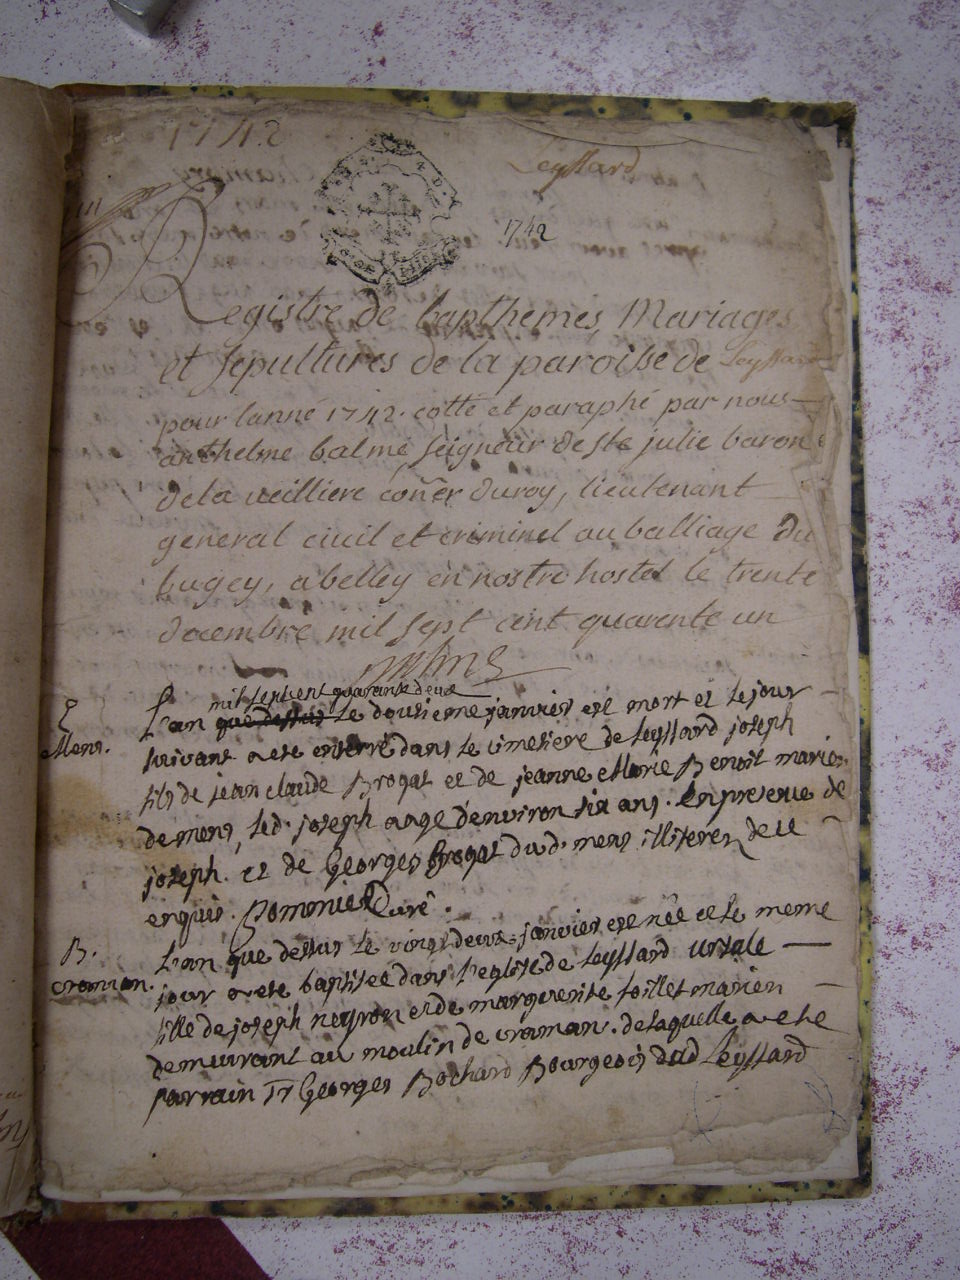 1742
Leyssard
1742
Registre de bapthemes, Mariages
et sepultures de la paroisse de Leyssard
pour lanné 1742. cotté et paraphé par nous
anthelme balme seigneur de ste julie baron
de la veilliere coñer du roy, lieutenant
general civil et criminel au balliage du
bugey, a belley en nostre hostel le trente
decembre mil sept cent quarente un
mil sept cent quarante deux
L'an que dessus le dousieme janvier est mort et le jour
Mens.
suivant a eté enterré dans le cimetiere de Leyssard joseph
fils de jean claude Brogat et de jeanne Marie Benoit mariés
de mens, led. joseph aagé d'environ six ans. En presence de
joseph et de Georges Brogat dud. mens illiterez de ce
enquis. Curé.
B.
L'an que dessus le vingt deux janvier est née et le meme
cromian.
jour a eté baptisée dans l'eglise de Leyssard ursule
fille de joseph neyron et de marguerite foillet mariés
demeurant au moulin de craman. de laquelle a eté
parrain Sr Georges Bochard Bourgeois dud Leyssard